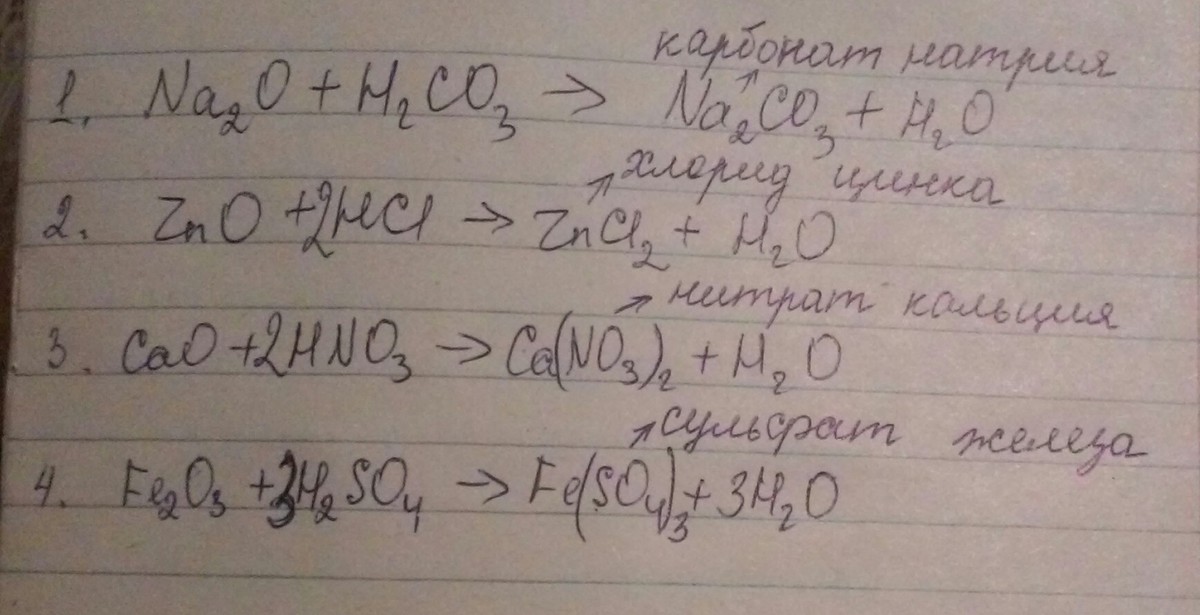 карбонат натрия
1. Na₂O + H₂CO₃ → Na₂CO₃ + H₂O
↗ хлорид цинка
2. ZnO + 2HCl → ZnCl₂ + H₂O
↗ нитрат кальция
3. CaO + 2HNO₃ → Ca(NO₃)₂ + H₂O
↗ сульфрат железа
4. Fe₂O₃ + 3H₂SO₄ → Fe(SO₄)₃ + 3H₂O